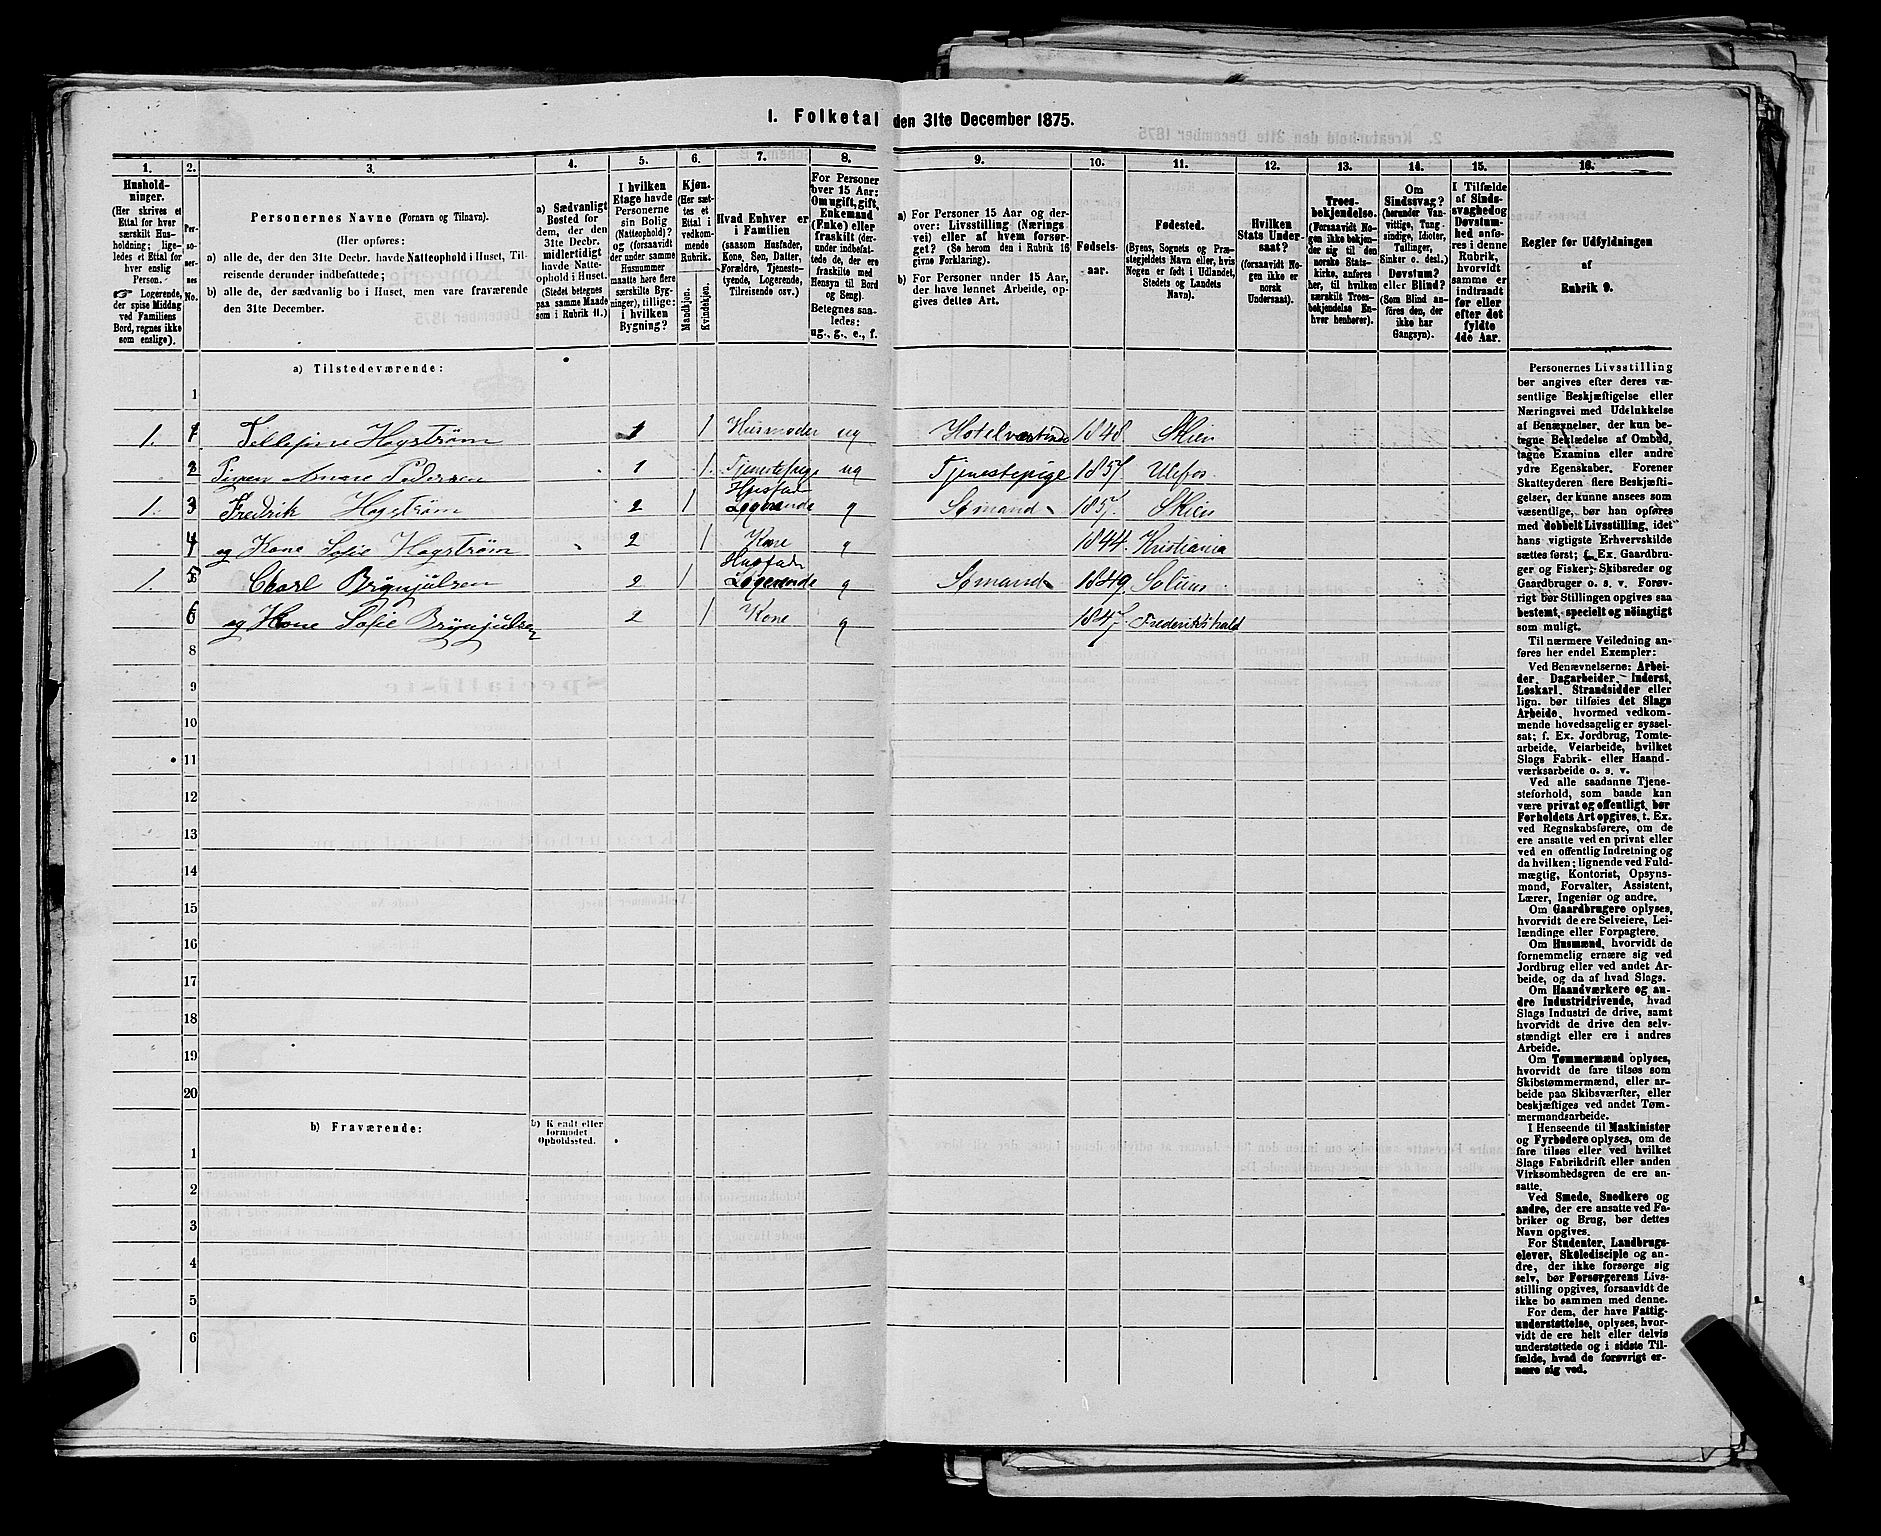 I. Folketal den 31te December 1875.
1. 2. 3. 4. 5. 6. 7. 8. 9. 10. 11. 12. 13. 14. 15. 16.
Hushold-
ninger.
(Her skrives et
Ettal for hver
særskilt Hus-
holdning; lige-
ledes et Ettal for
hver enslig
Person.
☞ Logerende,
der spise Middag
ved Familiens
Bord, regnes ikke
som enslige).
Per-
so-
ner-
nes
No.
Personernes Navne (Fornavn og Tilnavn).
(Her opføres:
a) alle de, der den 31te Decbr. havde Natteophold i Huset, Til-
reisende derunder indbefattede;
b) alle de, der sædvanlig bo i Huset, men vare fraværende
den 31te December.
a) Sædvanligt
Bosted for
dem, der den
31te Decbr.
midlertidigt
havde Natte-
ophold i Huset.
(Stedet betegnes
paa samme Maade
som i Rubrik 11.)
I hvilken
Etage havde
Personerne
sin Bolig
(Natteophold)?
og (forsaavidt
der under samme
Husnummer
maatte høre flere
særskilte Byg-
ninger), tillige:
i hvilken
Bygning?
Kjøn.
(Her sæt-
tes et
Ettal i
vedkom-
mende
Rubrik.
Mandkjøn.
Kvindekjøn.
Hvad Enhver er
i Familien
(saasom Husfader,
Kone, Søn, Datter,
Forældre, Tjeneste-
tyende, Logerende,
Tilreisende osv.)
For Personer
over 15 Aar:
Om ugift, gift,
Enkemand
(Enke) eller
fraskilt (der-
under indbefat-
tede de, der ere
fraskilte med
Hensyn til Bord
og Seng).
Betegnes saa-
ledes:
ug., g., e., f.
a) For Personer 15 Aar og der-
over: Livsstilling (Nærings-
vei) eller af hvem forsør-
get? (Se herom den i Rubrik 16
givne Forklaring).
b) For Personer under 15 Aar,
der have lønnet Arbeide, op-
gives dettes Art.
Fødsels-
aar.
Fødested.
(Byens, Sognets og Præ-
stegjeldets Navn eller, hvis
Nogen er født i Udlandet,
Stedets og Landets
Navn).
Hvilken
Stats Under-
saat?
(forsaavidt No-
gen ikke er
norsk
Undersaat).
Troes-
bekjendelse.
(Forsaavidt No-
gen ikke bekjen-
der sig til den
norske Stats-
kirke, anføres
her, til hvilken
særskilt Troes-
bekjendelse En-
hver henhører).
Om
Sindssvag?
(herunder Van-
vittige, Tung-
sindige, Idioter,
Tullinger,
Sinker o. desl.)
Døvstum?
eller Blind?
(Som Blind an-
føres den, der
ikke har
Gangsyn).
I Tilfælde
af Sinds-
svaghed og
Døvstum-
hed anfø-
res i denne
Rubrik,
hvorvidt
samme er
indtraadt
før eller
efter det
fyldte
4de Aar.
Regler for Udfyldningen
af
Rubrik 9.
a) Tilstedeværende:
1
1. 1 Hagstrøm 1 1 Husmoder ug Hotelvertinde 1848. Skien
2 Pedersen 1 1. Tjenestepige ug Tjenestepige 1857. Ulefos.
1. 3 Fredrik Hagstrøm 2 1 Husfad Logerende g Sømand 1857. Skien
4 og Kone Sofie Hagstrøm 2 1 Kone g 1844. Kristiania
1. 5 Charl Brynjulsen 2 1 Husfad Logerende g Sømand 1849. Solum
6 og Kone Sofie Brynjulsen 2 1 Kone g 1847. Frederikshald
8
9
10
11
12
13
14
15
16
17
18
19
20
b) Fraværende:
b) Kjendt eller
formodet
Opholdssted.
1
2
3
4
5
6
Personernes Livsstilling
bør angives efter deres væ-
sentlige Beskjæftigelse eller
Næringsvei med Udelukkelse
af Benævnelser, der kun be-
tegne Beklædelse af Ombud,
tagne Examina eller andre
ydre Egenskaber. Forener
Skatteyderen flere Beskjæfti-
gelser, der kunne ansees som
væsentlige, bør han opføres
med dobbelt Livsstilling, idet
hans vigtigste Erhvervskilde
sættes først; f. Ex. Gaardbru-
ger og Fisker; Skibsreder og
Gaardbruger o. s. v. Forøv-
rigt bør Stillingen opgives saa
bestemt, specielt og nøiagtigt
som muligt.
Til nærmere Veiledning an-
føres her endel Exempler:
Ved Benævnelserne: Arbei-
der, Dagarbeider, Inderst,
Løskarl, Strandsidder eller
lign. bør tilføies det Slags
Arbeide, hvormed vedkom-
mende hovedsagelig er syssel-
sat; f. Ex. Jordbrug, Tomte-
arbeide, Veiarbeide, hvilket
Slags Fabrik- eller Haand-
værksarbeide o. s. v.
Ved alle saadanne Tjene-
steforhold, som baade kan
være privat og offentligt, bør
Forholdets Art opgives, t. Ex.
ved Regnskabsførere, om de
ere ansatte ved en privat eller
ved en offentlig Indretning og
da hvilken; lignende ved Fuld-
mægtig, Kontorist, Opsyns-
mand, Forvalter, Assistent,
Lærer, Ingeniør og andre.
Om Gaardbrugere oplyses,
hvorvidt de ere Selveiere, Lei-
lændinge eller Forpagtere.
Om Husmænd, hvorvidt de
fornemmelig ernære sig ved
Jordbrug eller ved andet Ar-
beide, og da af hvad Slags.
Om Haandværkere og an-
dre Industridrivende, hvad
Slags Industri de drive, samt
hvorvidt de drive den selv-
stændigt eller ere i andres
Arbeide.
Om Tømmermænd oplyses,
hvorvidt de fare tilsøs som
Skibstømmermænd, eller ar-
beide paa Skibsværfter, eller
beskjæftiges ved andet Tøm-
mermandsarbeide.
I Henseende til Maskinister
og Fyrbødere oplyses, om de
fare tilsøs eller ved hvilket
Slags Fabrikdrift eller anden
Virksomhedsgren de ere an-
satte.
Ved Smede, Snedkere og
andre, der ere ansatte ved Fa-
briker og Brug, bør dettes
Navn opgives.
For Studenter, Landbrugs-
elever, Skoledisciple og an-
dre, der ikke forsørge sig
selv, bør Forsørgerens Livs-
stilling opgives, forsaavidt de
ikke bo sammen med denne.
For dem, der have Fattig-
understøttelse, oplyses, hvor-
vidt de ere helt eller delvis
understøttede og i sidste Til-
fælde, hvad de forøvrigt er-
nære sig ved.